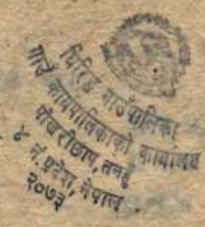 घिरिङ गाउँपालिका
गाउँ कार्यपालिकाको कार्यालय
पोखरीछाप, तनहुँ
४ नं. प्रदेश, नेपाल
२०७३